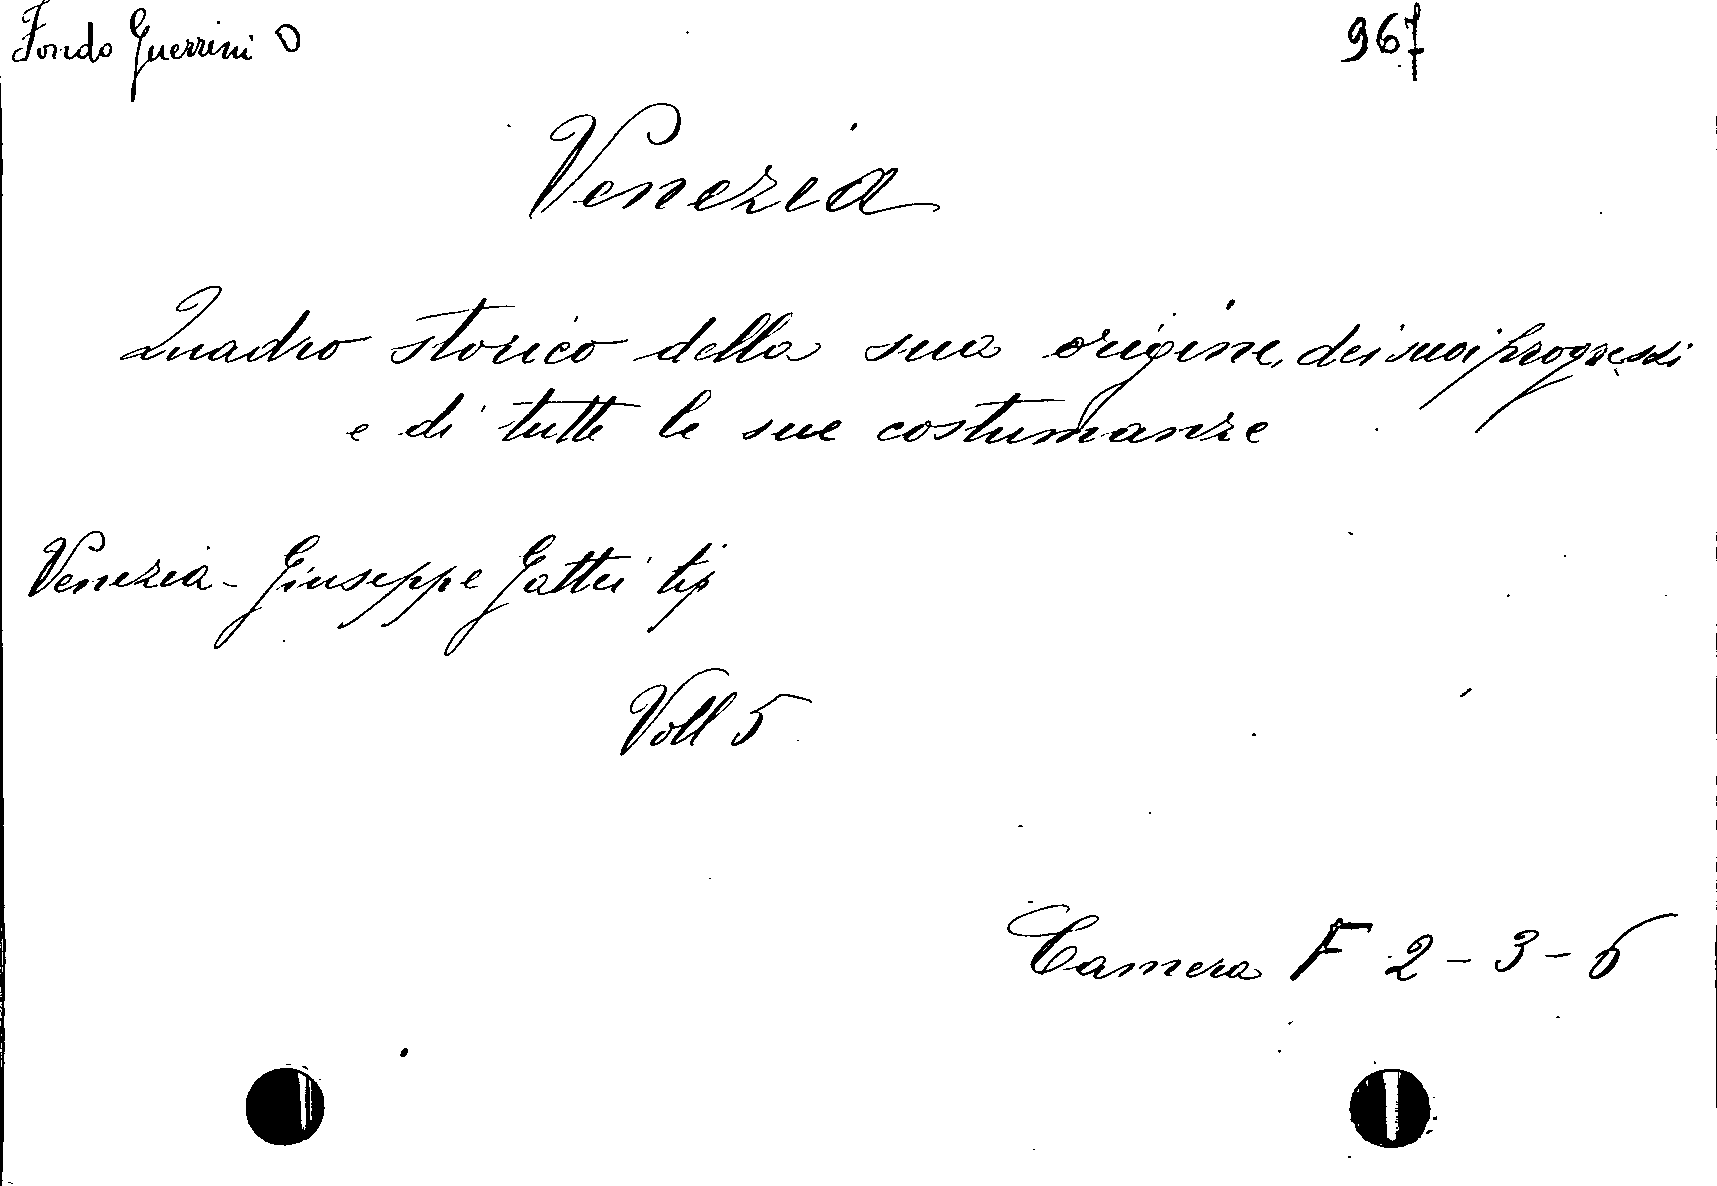 Fondo Guerrini O
967
Venezia
Quadro storico della sua origine, dei suoi progressi
e di tutte le sue costumanze
Venezia - Giuseppe Gattei tip
Voll 5
Camera F 2 - 3 - 6